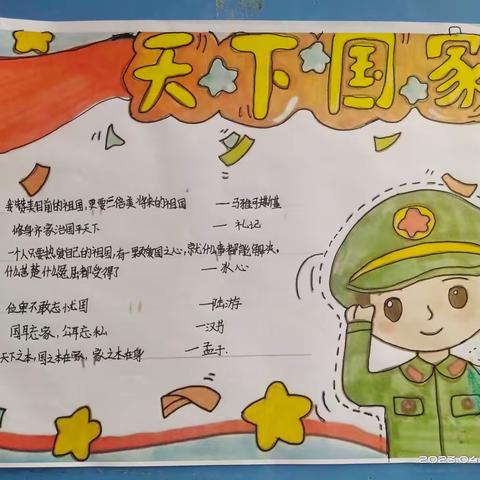 天下国家
我赞美目前的祖国,更要三倍美将来的祖国 —马雅可
修身齐家治国平天下 —礼记
一个人只要热爱自己的祖国,有一颗爱国之心,就什么事都能解决,
什么苦楚什么冤屈都受得了 —冰心
位卑不敢忘忧国 —陆游
国耳忘家,公耳忘私 —汉书
天下之本,国之本在家,家之本在身 —孟子.
2023.04